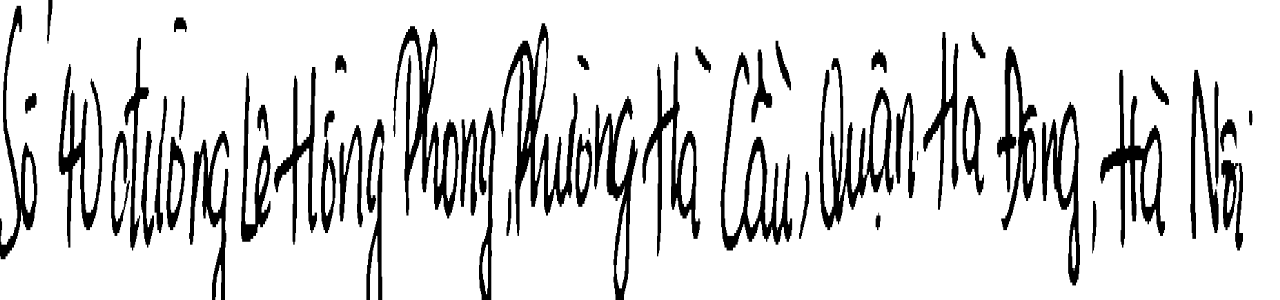 Số 40 đường Lê Hồng Phong, Phường Hà Cầu, Quận Hà Đông, Hà Nội